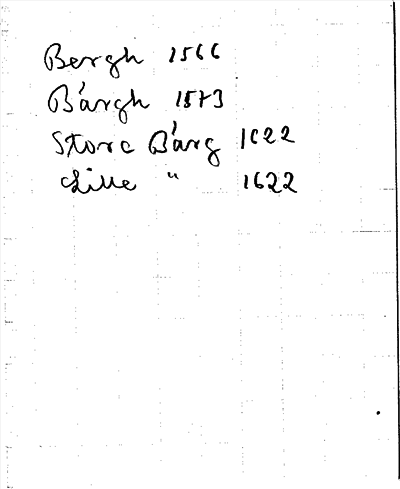 Bergh 1566
Bárgh 1573
Store Bárg 1622
Lille " 1622